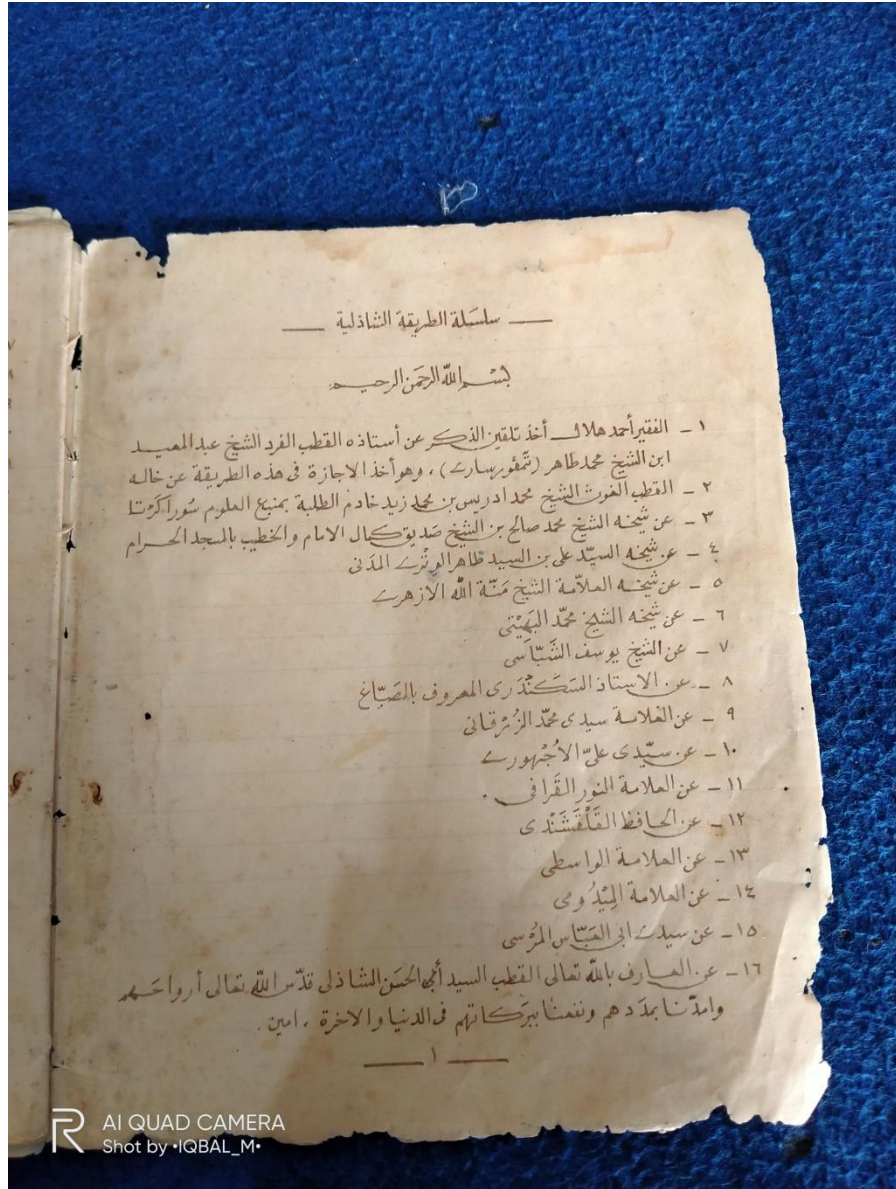 — سلسلة الطريقة الشاذلية —
بسم الله الرحمن الرحيم
١ - الفقير أحمد هلال أخذ تلقين الذكر عن أستاذه القطب الفرد الشيخ عبد المعيد
ابن الشيخ محمد طاهر (تمڤورسارى)، وهو أخذ الاجازة فى هذه الطريقة عن خاله
٢ - القطب الغوث الشيخ محمد ادريس بن محمد زيد خادم الطلبة بمنبع العلوم سُوراكَرْتا
٣ - عن شيخه الشيخ محمد صالح بن الشيخ صديق كمال الامام والخطيب بالمسجد الحرام
٤ - عن شيخه السيّد على بن السيد طاهر الوِتْرى المدَنى
٥ - عن شيخه العلاّمة الشيخ مَنّة الله الازهرى
٦ - عن شيخه الشيخ محمّد البَهِيْتى
٧ - عن الشيخ يوسف الشَّبّاسى
٨ - عن الاستاذ السَكَنْدَرى المعروف بالصَبّاغ
٩ - عن العلامة سيدى محمّد الزُرْقانى
١٠ - عن سيّدى علىّ الأُجْهورى
١١ - عن العلامة النور القَرافى .
١٢ - عن الحافظ القَلْقَشَنْدى
١٣ - عن العلامة الواسطى
١٤ - عن العلامة المِيْدُومى
١٥ - عن سيدى ابى العَبّاس المُرْسى
١٦ - عن العارف بالله تعالى القطب السيد أبى الحسَن الشاذلى قدّس الله تعالى أرواحهم
وامدّنا بمدَدهم ونفعنا ببركاتهم فى الدنيا والاخرة . امين .
— ١ —
AI QUAD CAMERA
Shot by •IQBAL_M•